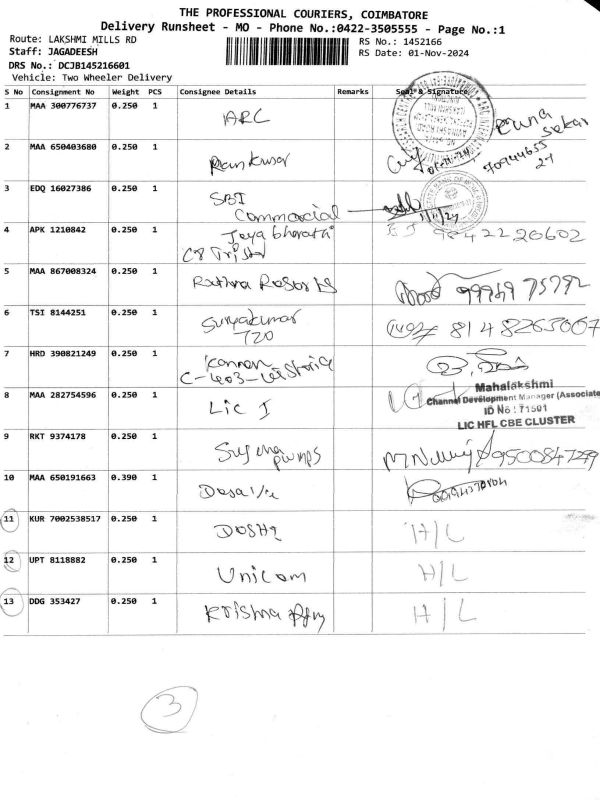 THE PROFESSIONAL COURIERS, COIMBATORE
Delivery Runsheet - MO - Phone No.:0422-3505555 - Page No.:1
Route: LAKSHMI MILLS RD
RS No.: 1452166
Staff: JAGADEESH
RS Date: 01-Nov-2024
DRS No.: DCJB145216601
Vehicle: Two Wheeler Delivery
S No Consignment No Weight PCS Consignee Details Remarks Seal & Signature
1 MAA 300776737 0.250 1 ARC
2 MAA 650403680 0.250 1 Ram Kumar
3 EDQ 16027386 0.250 1 SBI
Commercial
4 APK 1210842 0.250 1 Jaya bharathi 98422 20602
C8
5 MAA 867008324 0.250 1 Rathna 99769 75792
6 TSI 8144251 0.250 1 Suryakumar 8148263067
720
7 HRD 390821249 0.250 1 Kannan
C-403
8 MAA 282754596 0.250 1 LIC
Mahalakshmi
Channel Development Manager (Associate
ID No : 71501
LIC HFL CBE CLUSTER
9 RKT 9374178 0.250 1 Suguna
pumps
10 MAA 650191663 0.390 1
11 KUR 7002538517 0.250 1 H/L
12 UPT 8118882 0.250 1 Unicom H/L
13 DDG 353427 0.250 1 Krishna H/L
3